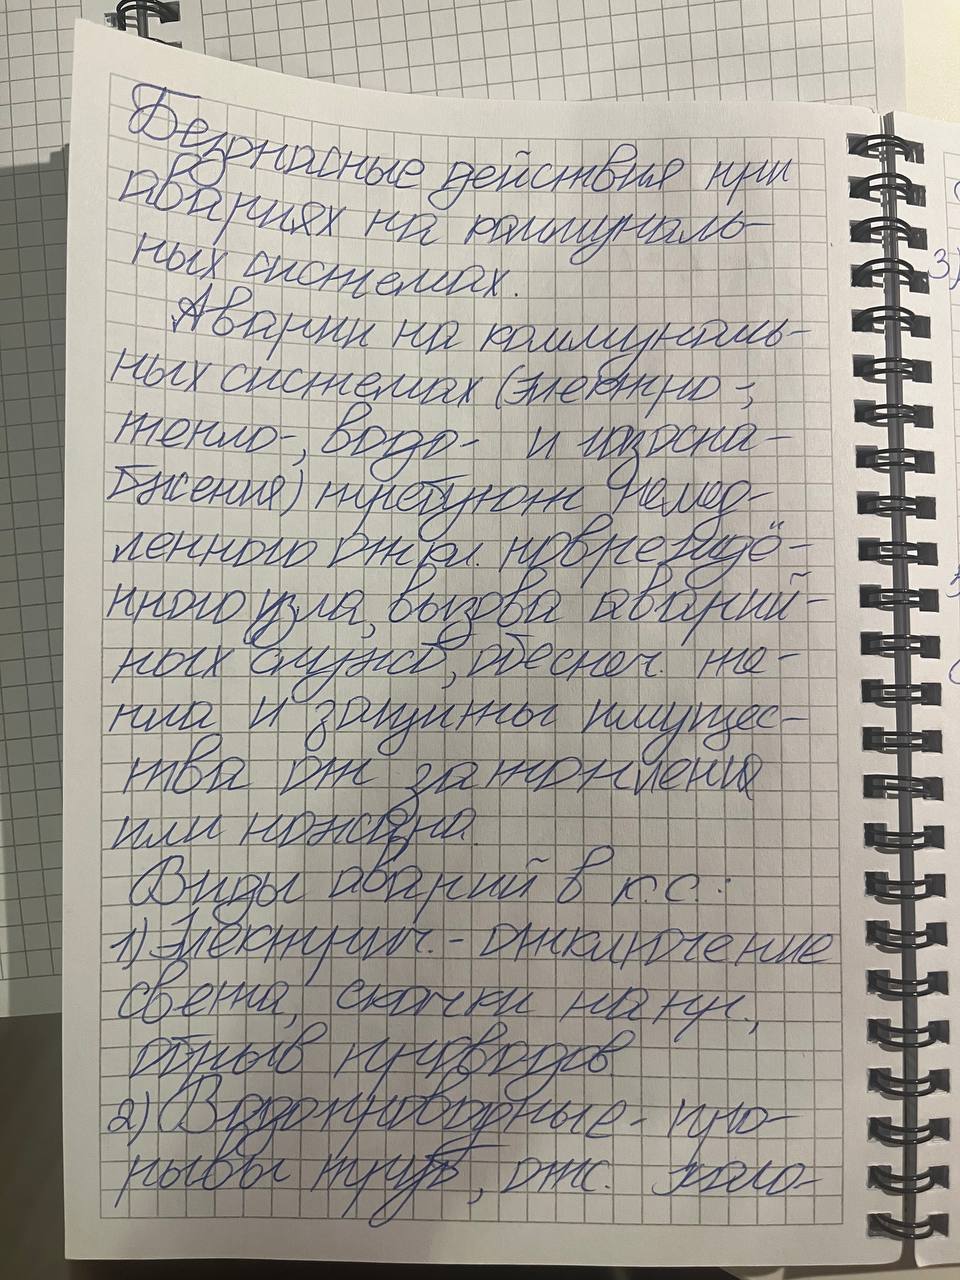 Безопасные действия при
авариях на коммуналь-
ных системах.
Аварии на коммуналь-
ных системах (электро-,
тепло-, водо- и газосна-
бжения) требуют немед-
ленного откл. повреждё-
нного узла, вызова аварий-
ных служб, обеспеч. те-
пла и защиты имущес-
тва от затопления
или пожара.
Виды аварий в к.с.:
1) Электрич. - отключение
света, скачки напр.,
обрыв проводов
2) Водопроводные - про-
рывы труб, от.
3)